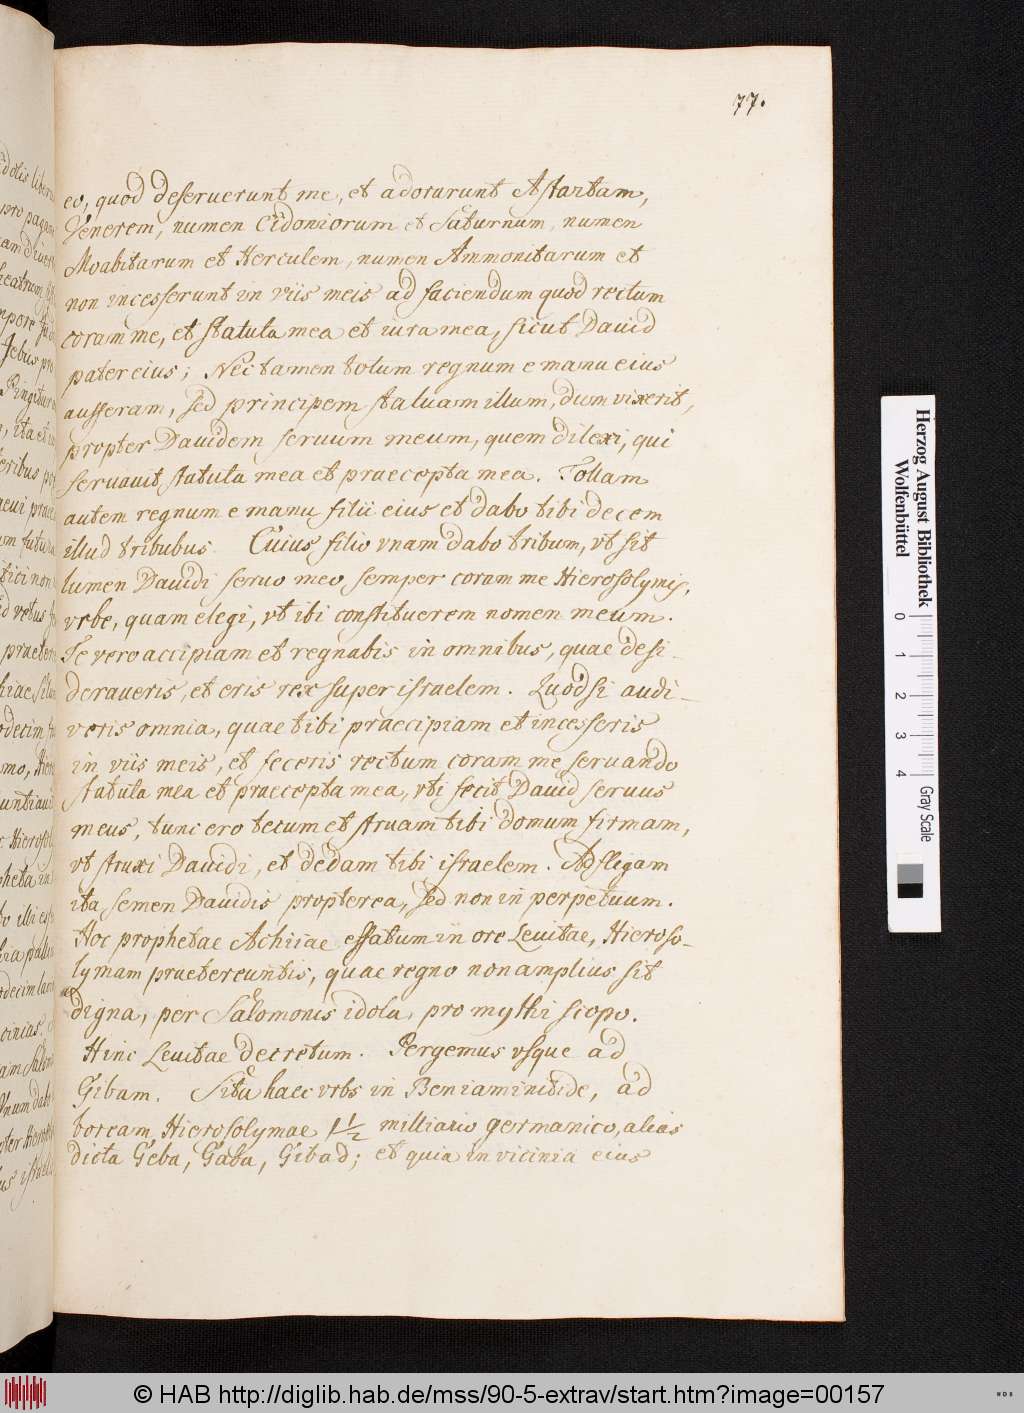 77.
eo, quod deseruerunt me, et adorarunt Astartam,
Venerem, numen Cidoniorum et Saturnum, numen
Moabitarum et Herculem, numen Ammonitarum et
non incesserunt in viis meis ad faciendum quod rectum
coram me, et statuta mea et iura mea, sicut Dauid
pater eius; Nec tamen totum regnum e manu eius
aufferam, sed principem statuam illum, dum vixerit,
propter Dauidem seruum meum, quem dilexi, qui
seruauit statuta mea et praecepta mea. Tollam
autem regnum e manu filii eius et dabo tibi decem
illud tribubus. Cuius filio vnam dabo tribum, vt sit
lumen Dauidi seruo meo semper coram me Hierosolymis,
vrbe, quam elegi, vt ibi constituerem nomen meum.
Te vero accipiam et regnabis in omnibus, quae desi-
deraueris, et eris rex super israelem. Quodsi audi-
veris omnia, quae tibi praecipiam et incesseris
in viis meis, et feceris rectum coram me seruando
statuta mea et praecepta mea, vti fecit Dauid seruus
meus, tunc ero tecum et struam tibi domum firmam,
vt struxi Dauidi, et dedam tibi israelem. Adfligam
ita semen Dauidis propterea, sed non in perpetuum.
Hoc prophetae Achiiae effatum in ore Leuitae, Hieroso-
lymam praetereuntis, quae regno non amplius sit
digna, per Salomonis idola, pro mythi scopo.
Hinc Leuitae decretum. Pergemus vsque ad
Gibam. Sita haec vrbs in Beniaminitide, ad
boream Hierosolymae 1 1/2 milliario germanico, alias
dicta Geba, Gaba, Gibad; et quia in vicinia eius
Herzog August Bibliothek
Wolfenbüttel
0 1 2 3 4
Gray Scale
© HAB http://diglib.hab.de/mss/90-5-extrav/start.htm?image=00157